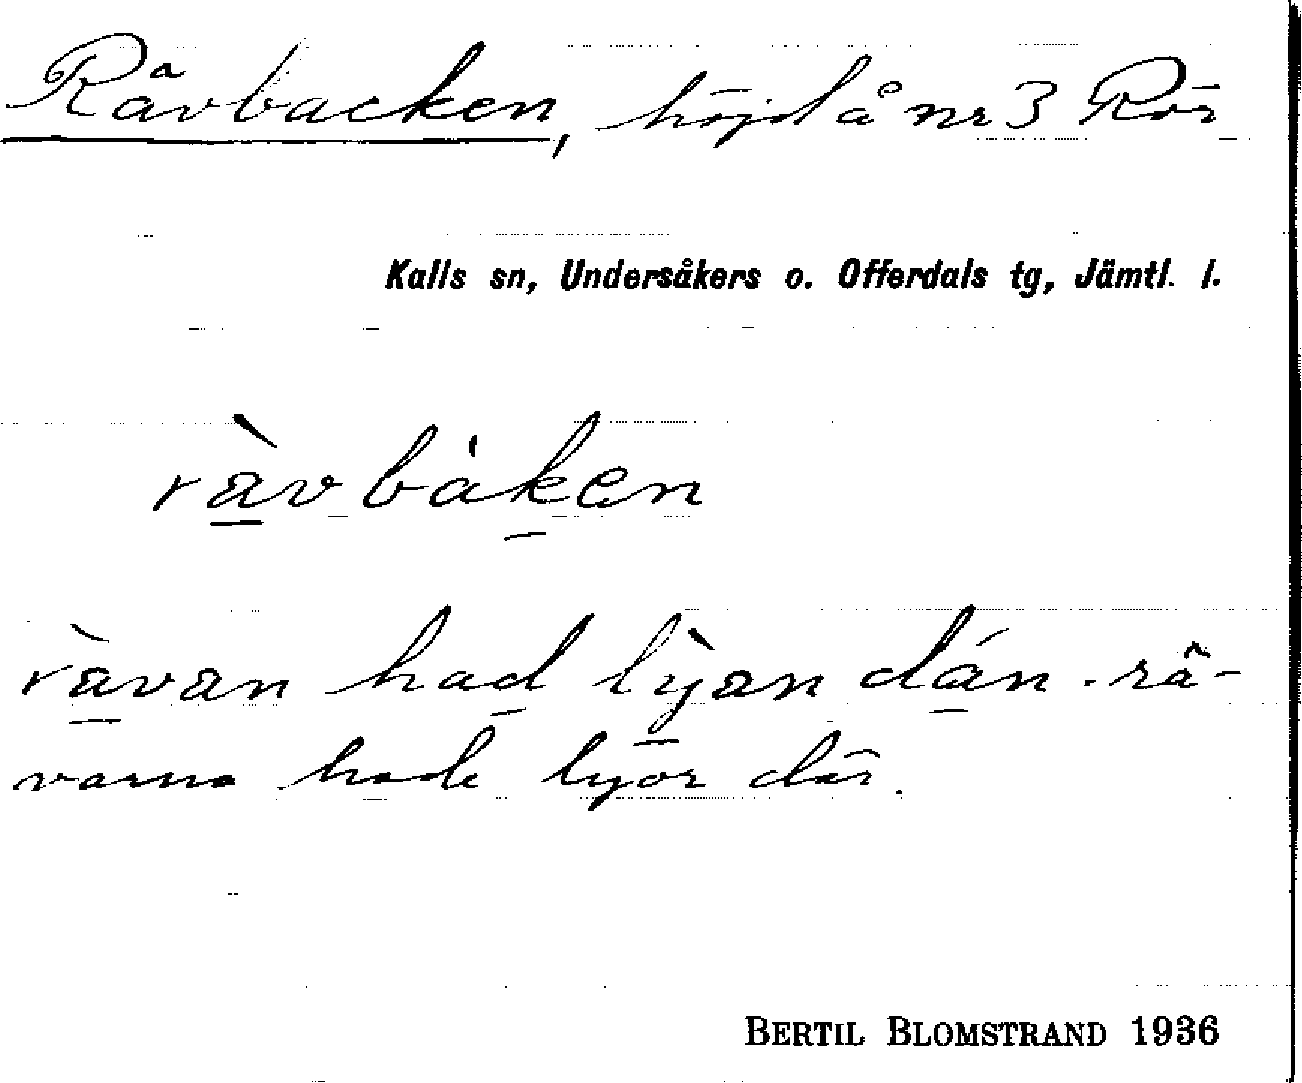 Rävbacken, höjd å nr 3 Rör
Kalls sn, Undersåkers o. Offerdals tg, Jämtl. l.
ràvbáken
ràvan had lỳan dán. rä-
varna hade lyor där.
BERTIL BLOMSTRAND 1936